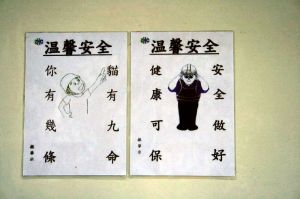 溫馨安全
貓有九命
你有幾條
溫馨安全
安全做好
健康可保